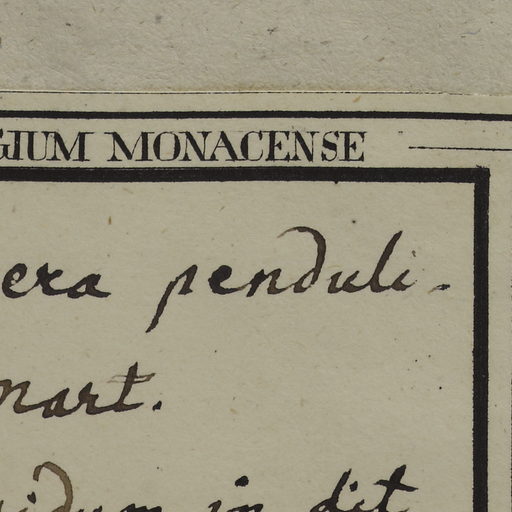 GIUM MONACENSE
era penduli-
nart.
idum in dit